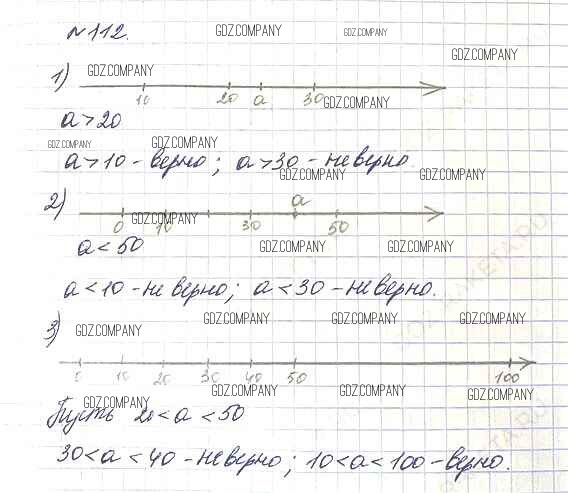 №112.
GDZ.COMPANY GDZ.COMPANY
GDZ.COMPANY
1) GDZ.COMPANY
10 20 a 30
GDZ.COMPANY
a > 20
GDZ.COMPANY GDZ.COMPANY
a > 10 - верно; a > 30 - неверно.
GDZ.COMPANY GDZ.COMPANY
2) a
GDZ.COMPANY
0 10 30 50
a < 50
GDZ.COMPANY GDZ.COMPANY
a < 10 - неверно; a < 30 - неверно.
3) GDZ.COMPANY GDZ.COMPANY GDZ.COMPANY GDZ.COMPANY
0 10 20 30 40 50 100
GDZ.COMPANY GDZ.COMPANY GDZ.COMPANY GDZ.COMPANY
Пусть 20 < a < 50
30 < a < 40 - неверно; 10 < a < 100 - верно.